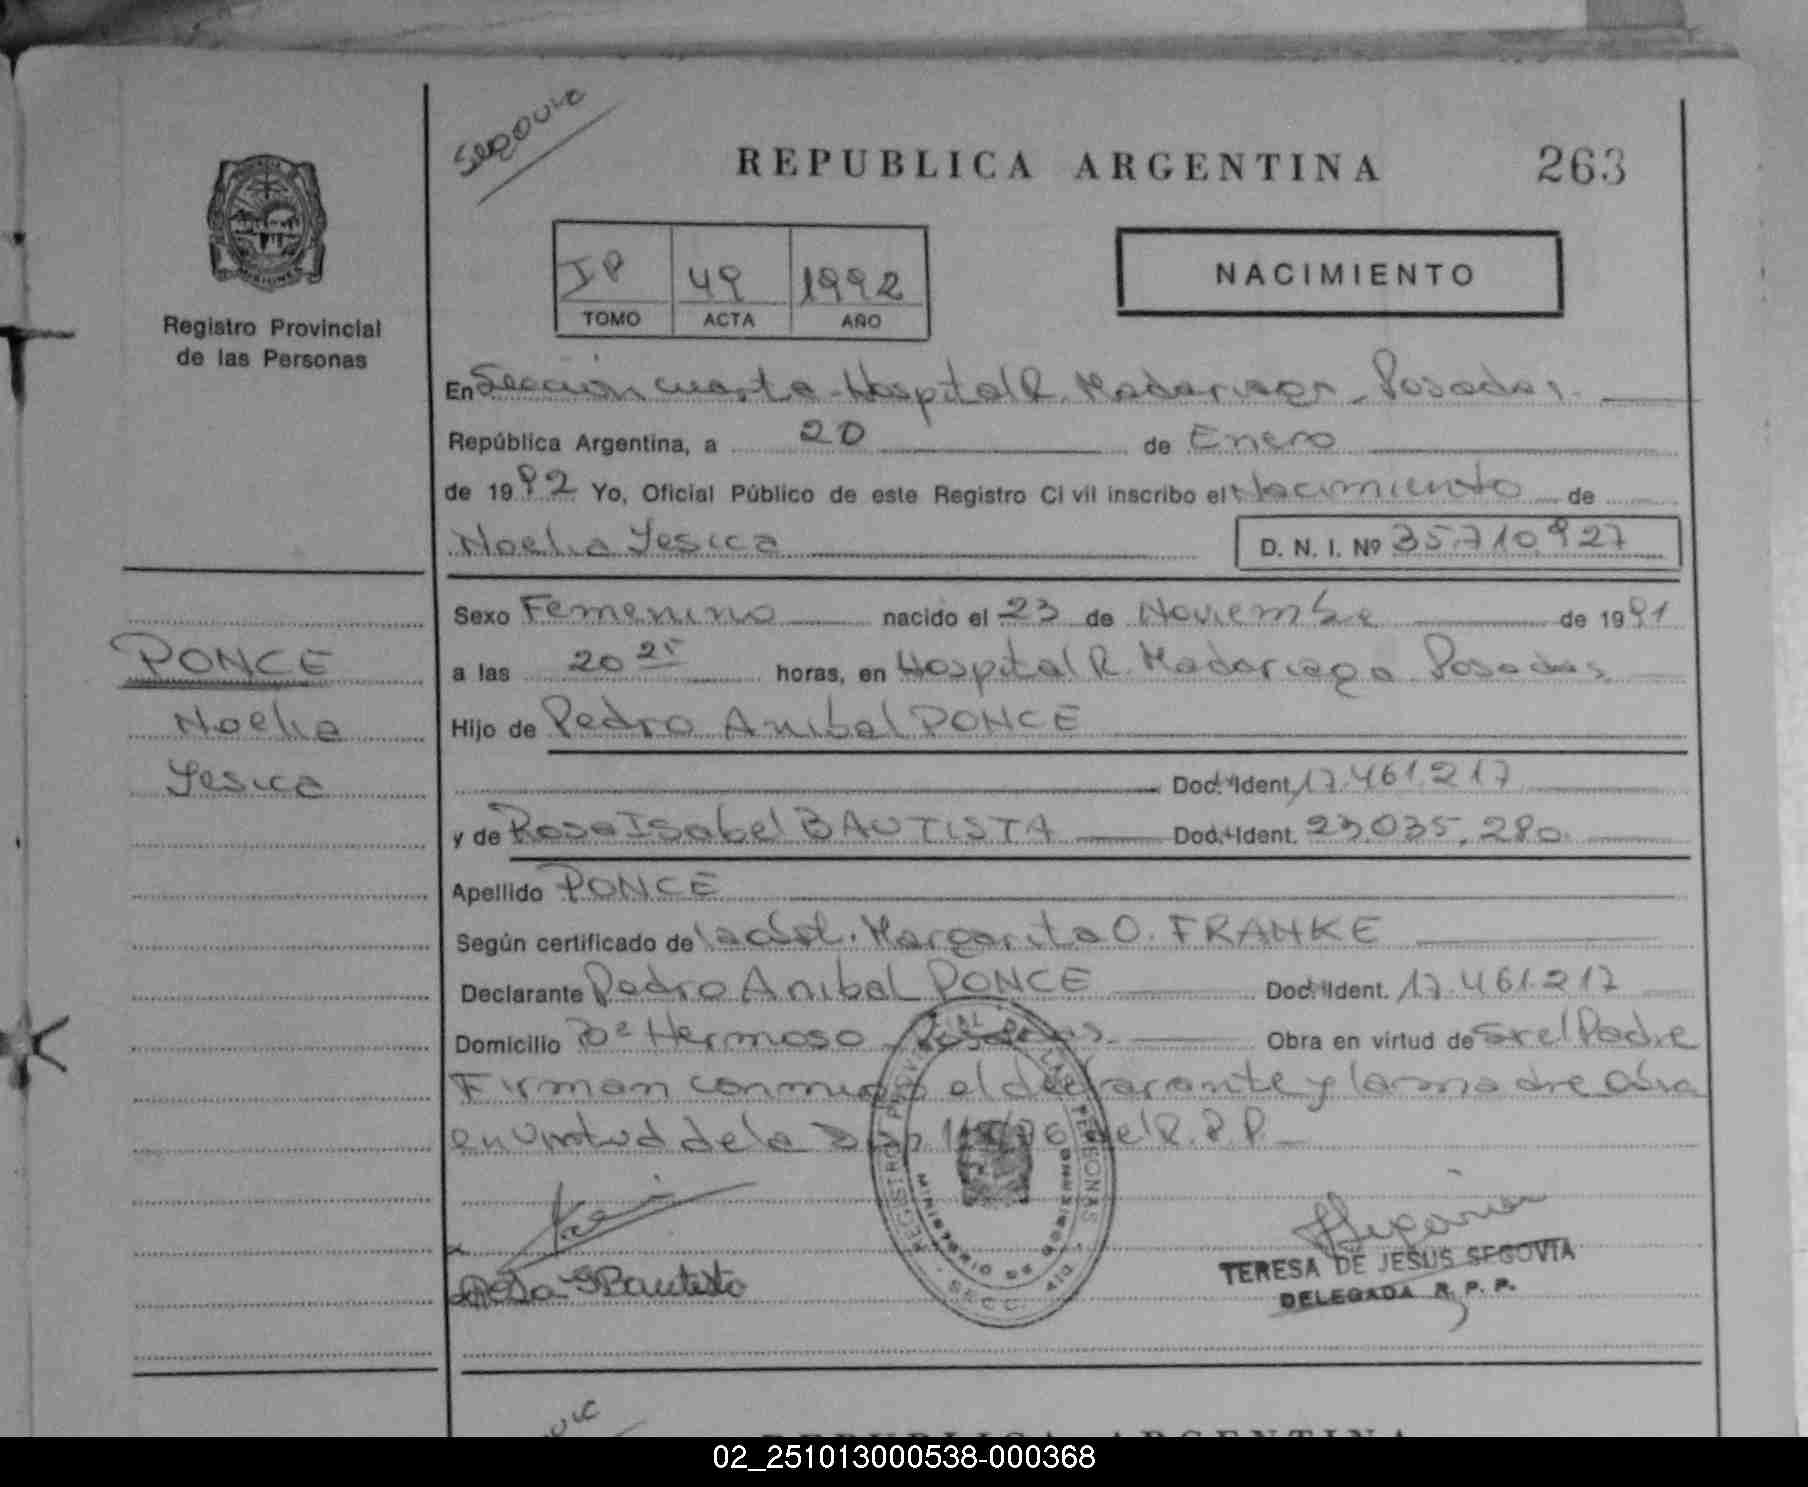 Segovia
REPUBLICA ARGENTINA 263
Registro Provincial
de las Personas
49 1992
TOMO ACTA AÑO
NACIMIENTO
En Sección cuarta - Hospital R. Madariaga - Posadas.
República Argentina, a 20 de Enero
de 1992 Yo, Oficial Público de este Registro Civil inscribo el Nacimiento de
Noelia Yesica D. N. I. Nº 35.710.927
Sexo Femenino nacido el 23 de Noviembre de 1991
PONCE
a las 20 25 horas, en Hospital R. Madariaga Posadas
Noelia
Hijo de Pedro Anibal PONCE
Yesica
Doc. Ident. 17.461.217
y de Rosa Isabel BAUTISTA Doc. Ident. 23.035.280
Apellido PONCE
Según certificado de la obst. Margarita O. FRANKE
Declarante Pedro Anibal PONCE Doc. Ident. 17.461.217
Domicilio Bº Hermoso Posadas Obra en virtud de Ser el Padre
Firman conmigo el declarante y la madre Obra
en virtud de la Disp. del R.P.P.
REGISTRO PROVINCIAL DE LAS PERSONAS
MINISTERIO DE GOBIERNO
SECC. 4ta
Rosa Bautista
TERESA DE JESUS SEGOVIA
DELEGADA R. P. P.
REPUBLICA ARGENTINA
02_251013000538-000368